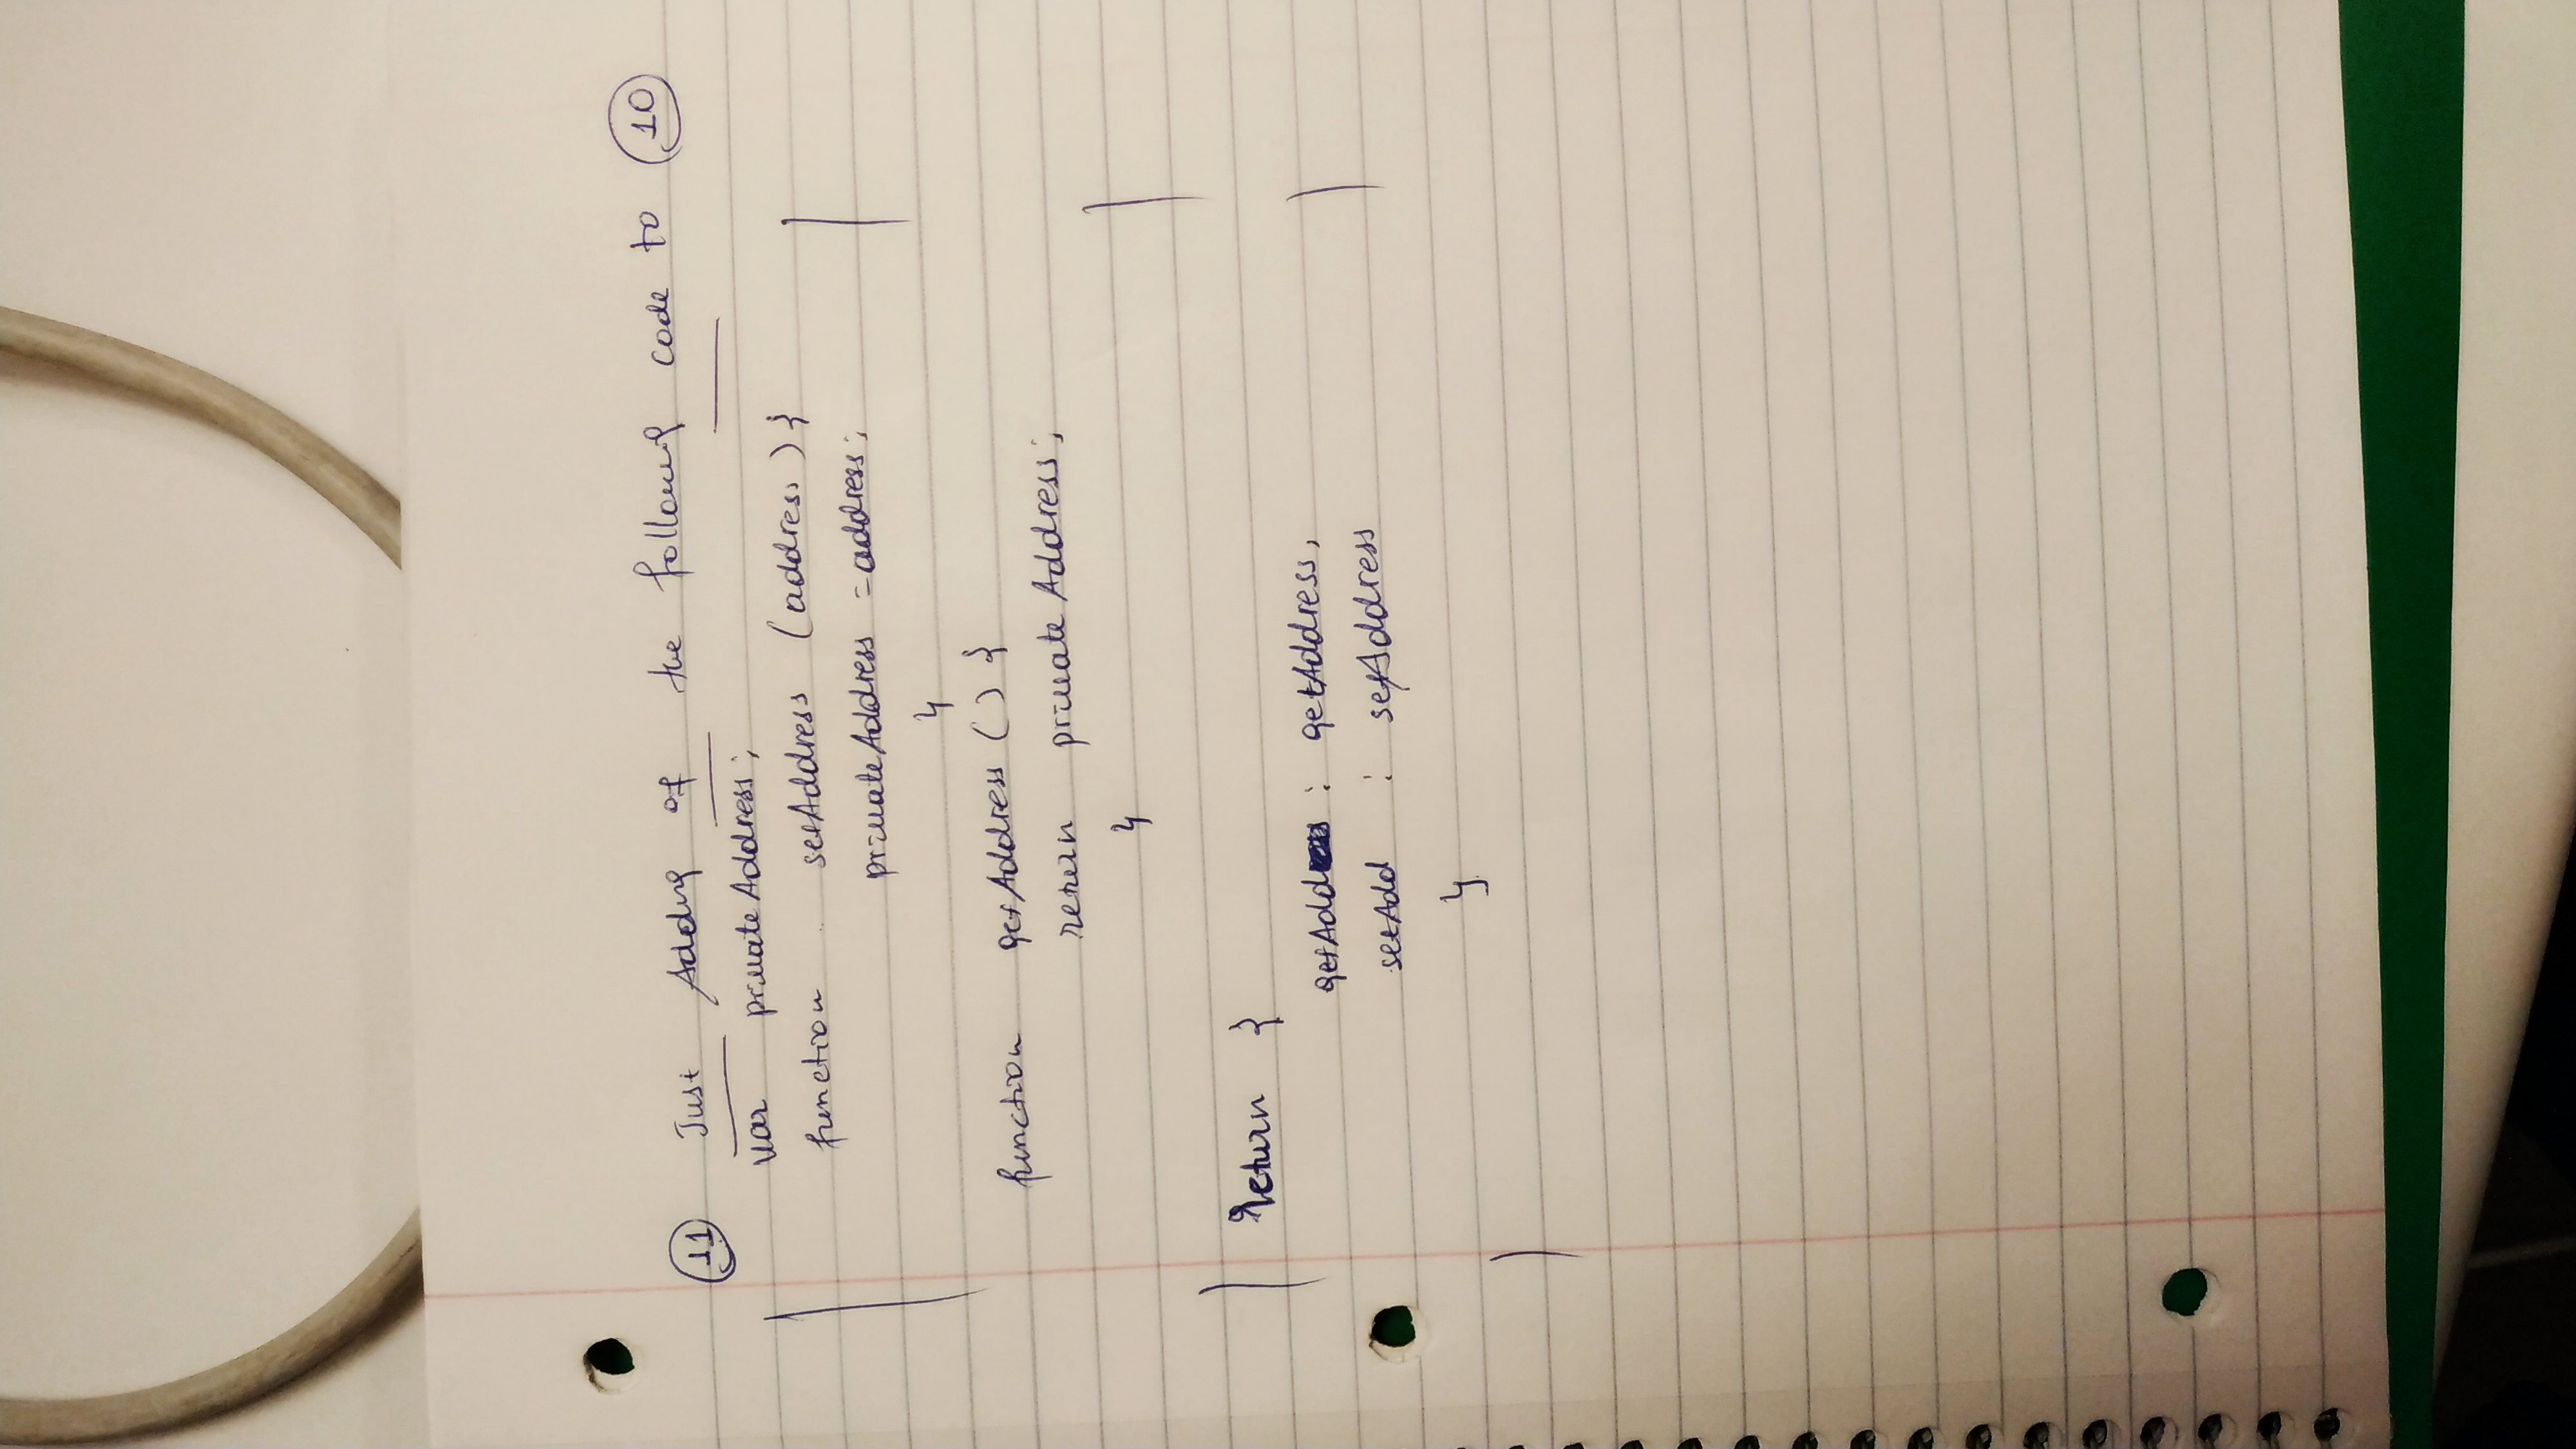 11 Just Adding of the following code to 10
var privateAddress;
function setAddress (address) {
privateAddress = address;
}
function getAddress () {
return privateAddress;
}
Return {
getAdd : getAddress,
setAdd : setAddress
}